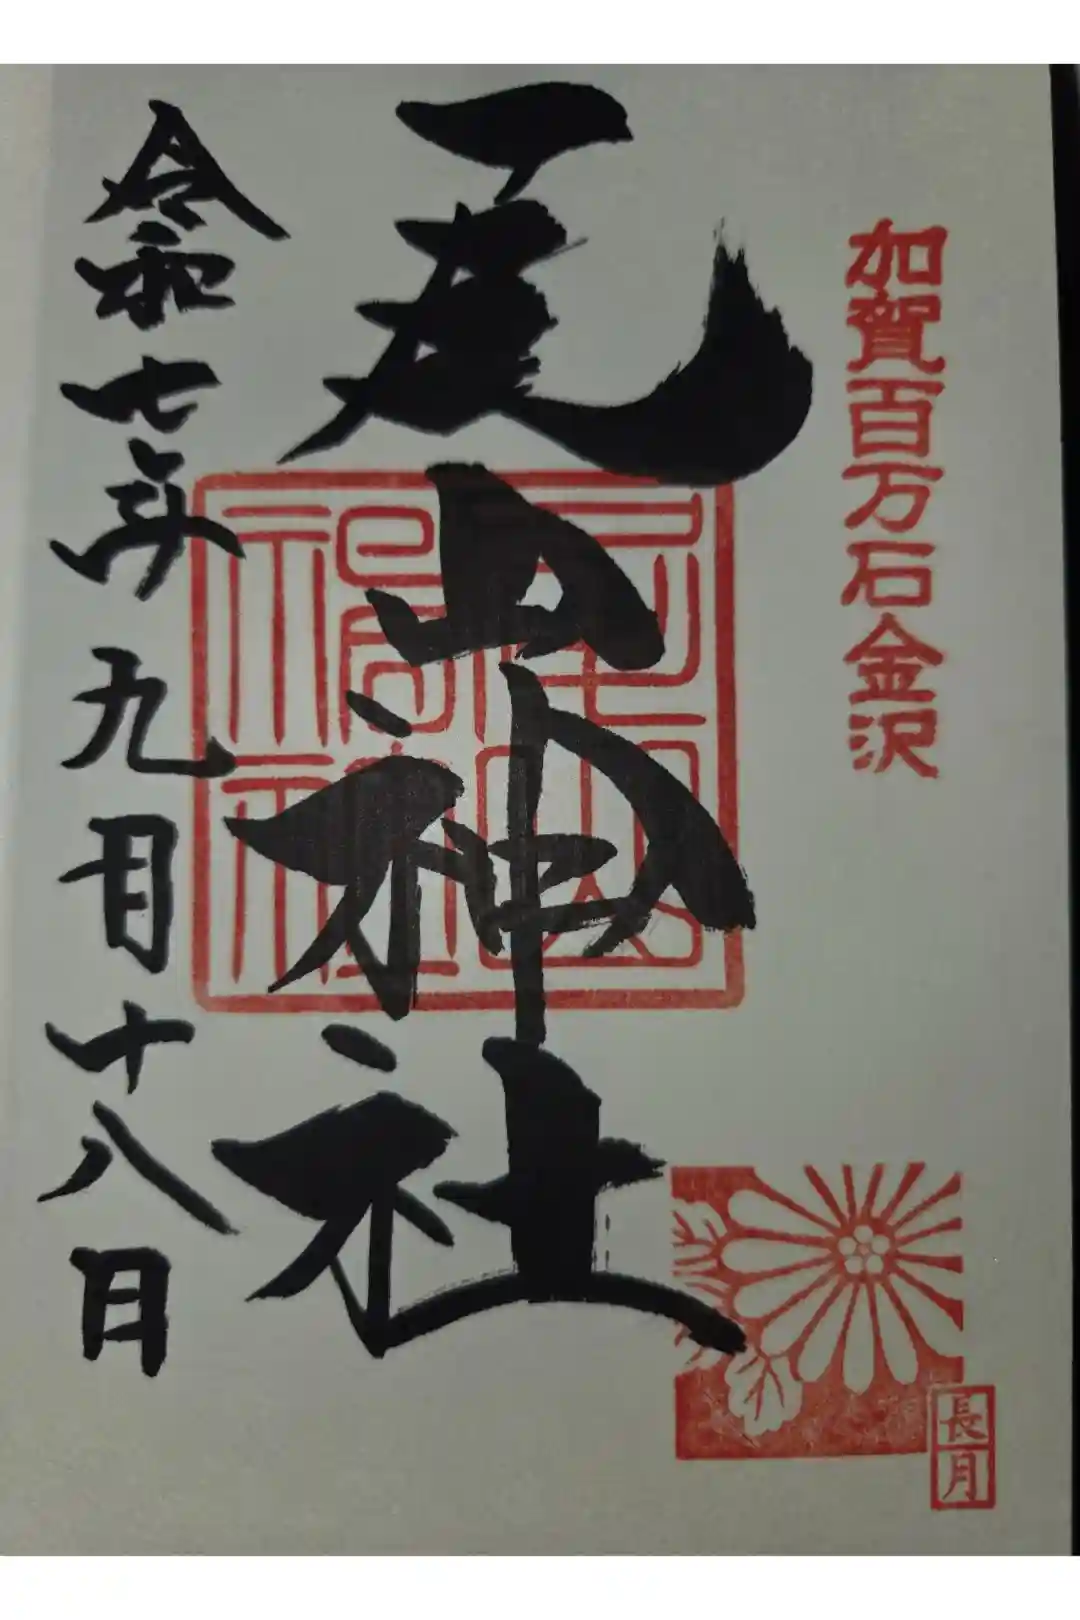 加賀百万石金沢
尾山神社
尾山神社
令和七年九月十八日
長月